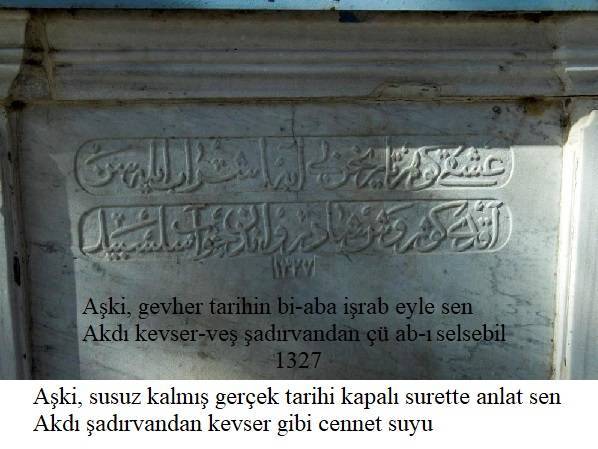 عشقی کوهر تاریخن بی ابا اشراب ایله سن
آقدی کوثروش شادرواندن چو آب سلسبیل
١٣٢٧
Aşki, gevher tarihin bi-aba işrab eyle sen
Akdı kevser-veş şadırvandan çü ab-ı selsebil
1327
Aşki, susuz kalmış gerçek tarihi kapalı surette anlat sen
Akdı şadırvandan kevser gibi cennet suyu